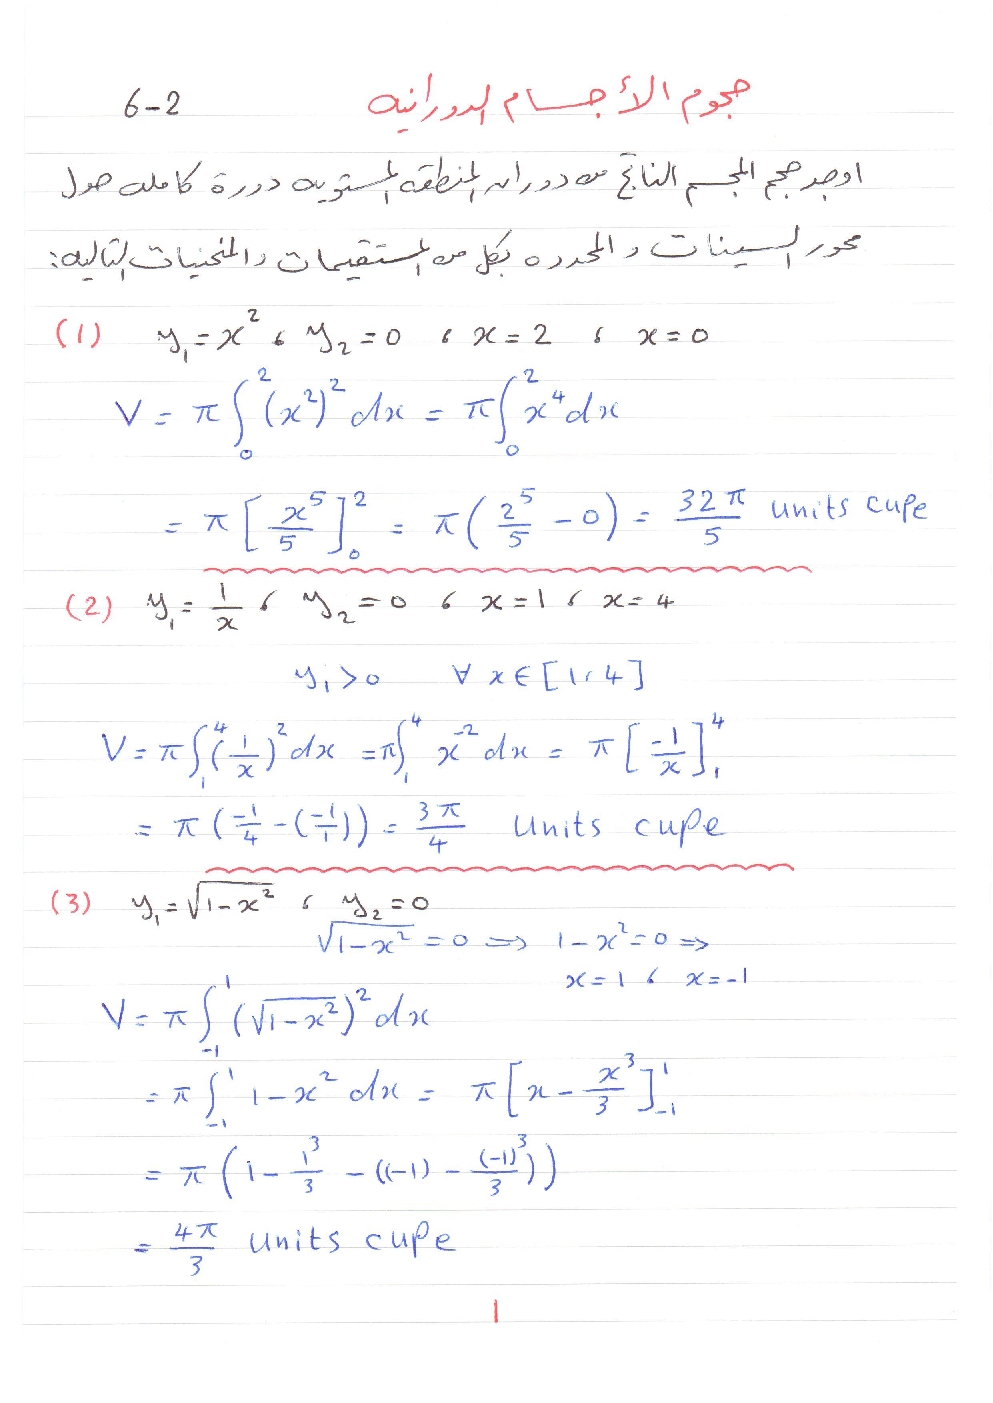 6-2 حجوم الأجسام الدورانيه
اوجد حجم المجسم الناتج من دوران المنطقه المستويه دورة كامله حول
محور السينات والمحدده بكل من المستقيمات والمنحنيات التاليه:
(1) y₁ = x² ، y₂ = 0 ، x = 2 ، x = 0
V = π∫₀² (x²)² dx = π∫₀² x⁴ dx
= π [x⁵/5]₀² = π(2⁵/5 - 0) = 32π/5 units cupe
(2) y₁ = 1/x ، y₂ = 0 ، x = 1 ، x = 4
y₁ > 0 ∀ x ∈ [1، 4]
V = π∫₁⁴ (1/x)² dx = π∫₁⁴ x⁻² dx = π [-1/x]₁⁴
= π(-1/4 - (-1/1)) = 3π/4 Units cupe
(3) y₁ = √(1-x²) ، y₂ = 0
√(1-x²) = 0 ⇒ 1-x² = 0 ⇒
x = 1 ، x = -1
V = π∫₋₁¹ (√(1-x²))² dx
= π∫₋₁¹ 1-x² dx = π [x - x³/3]₋₁¹
= π(1 - 1³/3 - ((-1) - (-1)³/3))
= 4π/3 units cupe
1